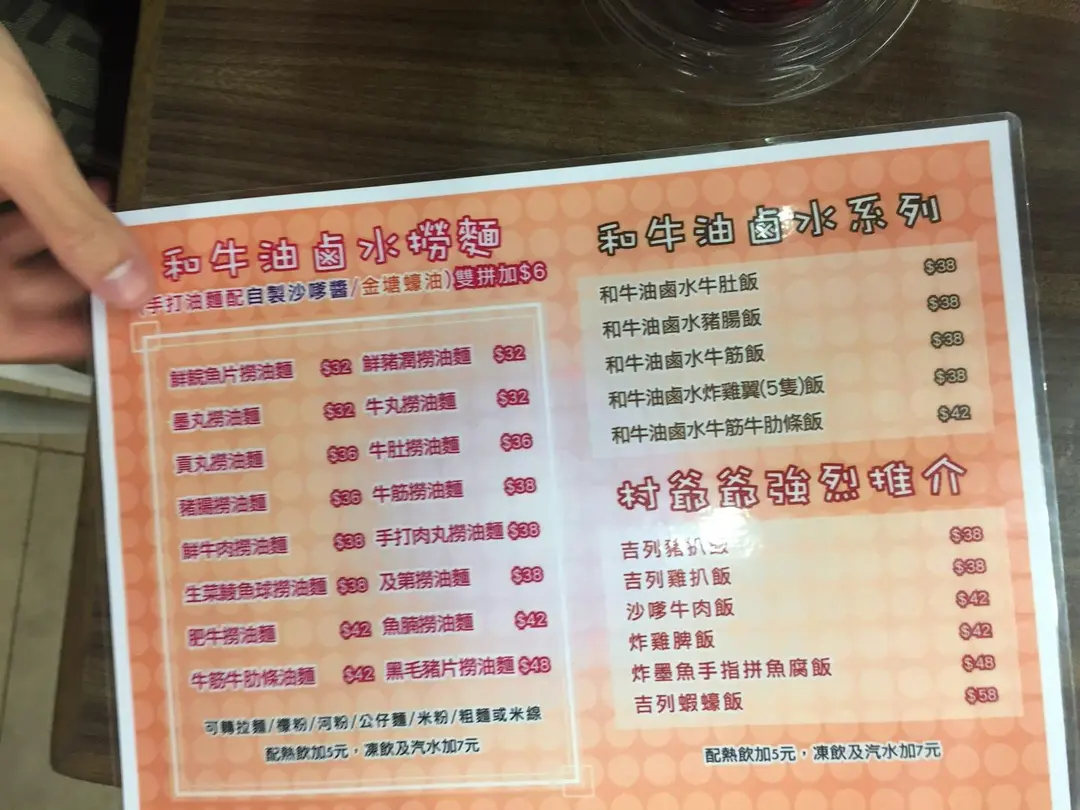 和牛油鹵水撈麵
(手打油麵配自製沙嗲醬/金塘蠔油)雙拼加$6
鮮鯇魚片撈油麵 $32 鮮豬潤撈油麵 $32
墨丸撈油麵 $32 牛丸撈油麵 $32
貢丸撈油麵 $36 牛肚撈油麵 $36
豬腸撈油麵 $36 牛筋撈油麵 $38
鮮牛肉撈油麵 $38 手打肉丸撈油麵 $38
生菜鯪魚球撈油麵 $38 及第撈油麵 $38
肥牛撈油麵 $42 魚腩撈油麵 $42
牛筋牛肋條油麵 $42 黑毛豬片撈油麵 $48
可轉拉麵/檬粉/河粉/公仔麵/米粉/粗麵或米線
配熱飲加5元，凍飲及汽水加7元
和牛油鹵水系列
和牛油鹵水牛肚飯 $38
和牛油鹵水豬腸飯 $38
和牛油鹵水牛筋飯 $38
和牛油鹵水炸雞翼(5隻)飯 $38
和牛油鹵水牛筋牛肋條飯 $42
村爺爺強烈推介
吉列豬扒飯 $38
吉列雞扒飯 $38
沙嗲牛肉飯 $42
炸雞脾飯 $42
炸墨魚手指拼魚腐飯 $48
吉列蝦蠔飯 $58
配熱飲加5元，凍飲及汽水加7元